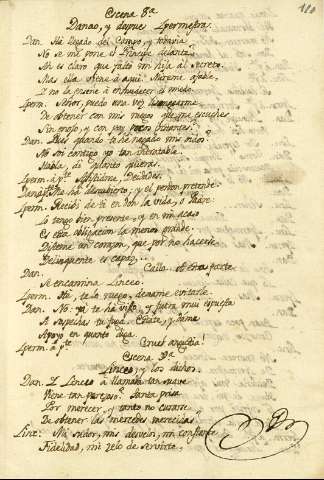 110
Escena 8ª
Danao, y depues Ipermestra.
Dan. Ha llegado del Campo, y todavia
No se me pone el Principe delante.
Ah es claro que faltó mi hija al Secreto.
Mas ella viene à aqui. Mireme afable,
Y no la precise à enmudecer el miedo.
Iperm. Señor, puedo una vez
De obtener con mis ruegos que me escuches
Sin enojo, y con voz
Dan. Pues quando te he negado mis oidos?
No soi contigo yo tan Intratable.
Habla, di quanto quieras.
Iperm. à pte. Deidades.
Dan. à pte. Me ha descubierto, y el perdon pretende.
Iperm. Recibi de ti en don la vida, o Padre:
Lo tengo bien presente, y en mi acaso
Es esta obligacion la menor grande.
Disteme un corazon, que por no hacerse
Delinquente es capaz...
Dan. Calla. A esta parte
Se encamina Linceo.
Iperm. Ha, te lo ruego, dexame evitarle.
Dan. No: ya te ha visto, y fuera mui expuesta
A sospechas tu fuga. Estate, y dame
Apoyo en quanto diga.
Iperm. à pte. Cruel angustia!
Escena 9ª
Linceo, y los dichos.
Dan. Linceo à llamada tan suave
Viene tan perezoso? Tanta prisa
Por merecer, y tanto no curarse
De obtener las mercedes merecidas?
Linc: Ha señor, mis desvelos, mi constante
Fidelidad, mi zelo de servirte.